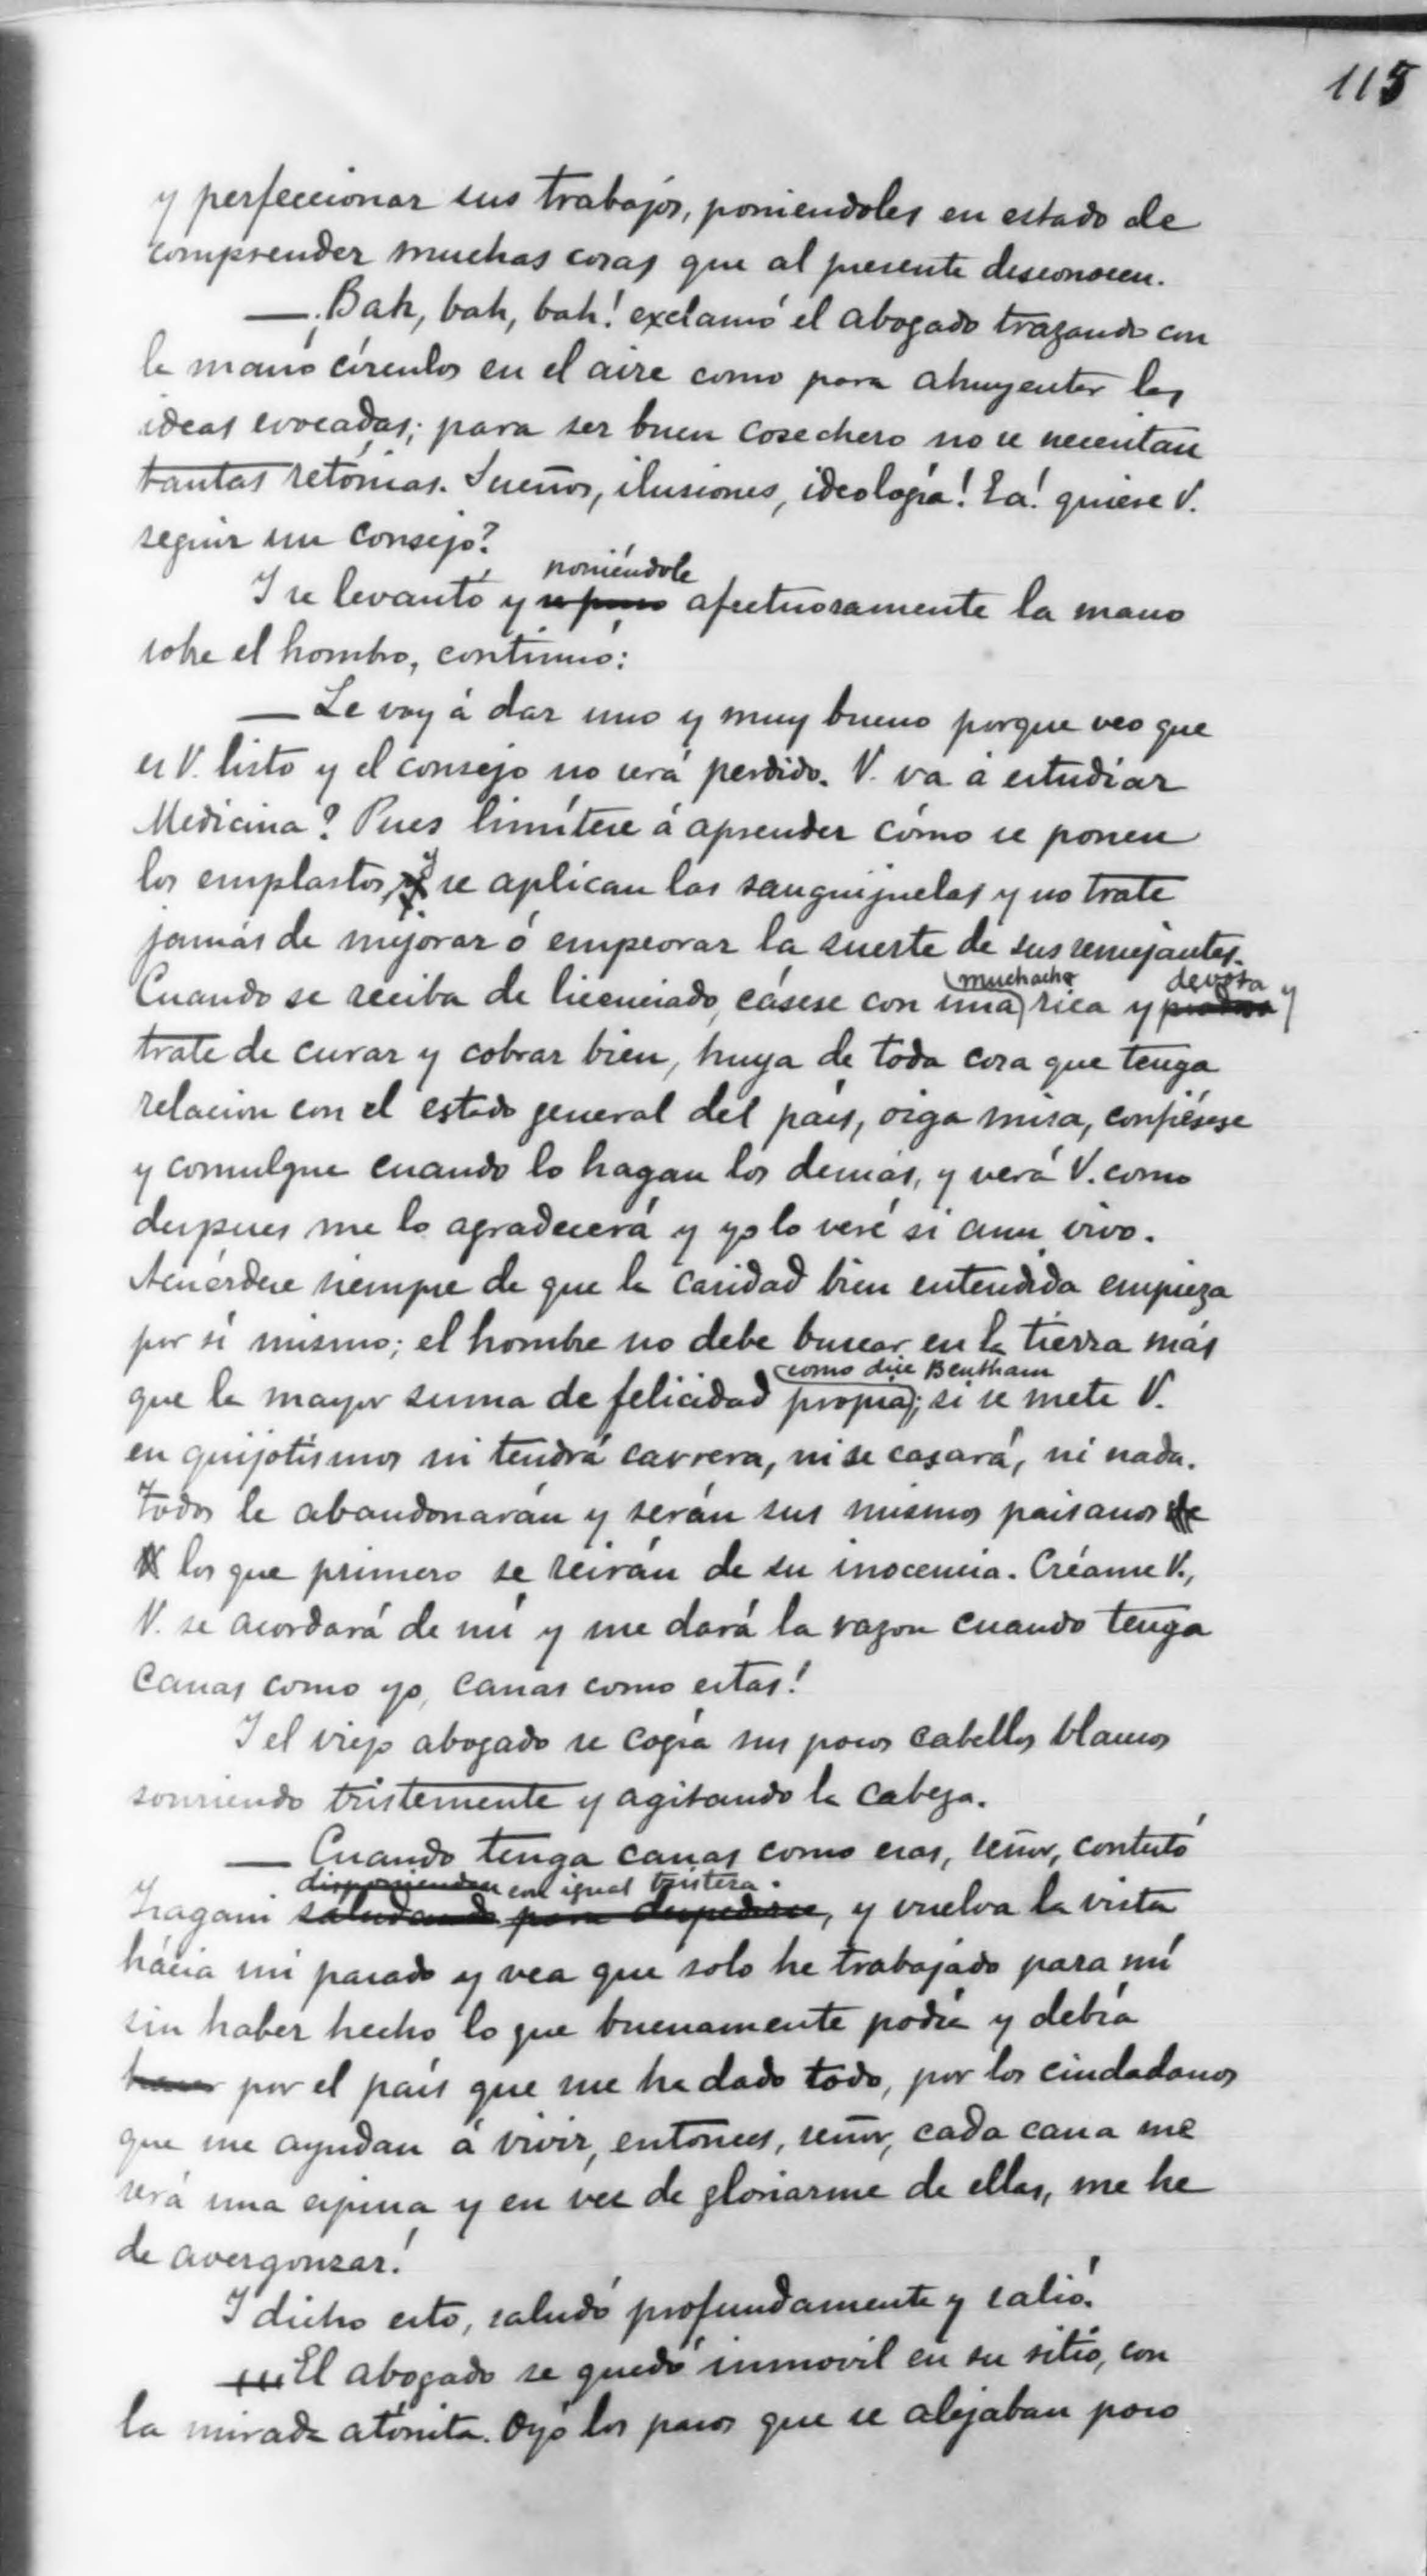 115
y perfeccionar sus trabajos, poniendoles en estado de
comprender muchas cosas que al presente desconocen.
—¡Bah, bah, bah! exclamó el abogado trazando con
la mano círculos en el aire como para ahuyentar las
ideas evocadas; para ser buen cosechero no se necesitan
tantas retóricas. Sueños, ilusiones, ideología! Ea! quiere V.
seguir un consejo?
poniéndole
Y se levantó y se puso afectuosamente la mano
sobre el hombro, continuó:
— Le voy á dar uno y muy bueno porque veo que
es V. listo y el consejo no será perdido. V. va á estudiar
Medicina? Pues limítese á aprender cómo se ponen
los emplastos y se aplican las sanguijuelas y no trate
jamás de mejorar ó empeorar la suerte de sus semejantes.
muchacha devota y
Cuando se reciba de licenciado, cásese con una rica y piadosa
trate de curar y cobrar bien, huya de toda cosa que tenga
relacion con el estado general del país, oiga misa, confiésese
y comulgue cuando lo hagan los demás, y verá V. como
despues me lo agradecerá y yo lo veré si aun vivo.
Acuérdese siempre de que la caridad bien entendida empieza
por sí mismo; el hombre no debe buscar en la tierra más
como dice Bentham
que la mayor suma de felicidad propia; si se mete V.
en quijotismos ni tendrá carrera, ni se casará, ni nada.
Todos le abandonarán y serán sus mismos paisanos de
los que primero se reirán de su inocencia. Créame V.,
V. se acordará de mí y me dará la razon cuando tenga
canas como yo, canas como estas!
Y el viejo abogado se cogía sus pocos cabellos blancos
sonriendo tristemente y agitando la cabeza.
— Cuando tenga canas como esas, señor, contestó
disponiendose con igual tristeza.
Isagani saludando para despedirse, y vuelva la vista
hácia mi pasado y vea que solo he trabajado para mí
sin haber hecho lo que buenamente podía y debía
hacer por el país que me ha dado todo, por los ciudadanos
que me ayudan á vivir, entonces, señor, cada cana me
será una espina y en vez de gloriarme de ellas, me he
de avergonzar!
Y dicho esto, saludó profundamente y salió.
El abogado se quedó inmovil en su sitio, con
la mirada atónita. Oyó los pasos que se alejaban poco